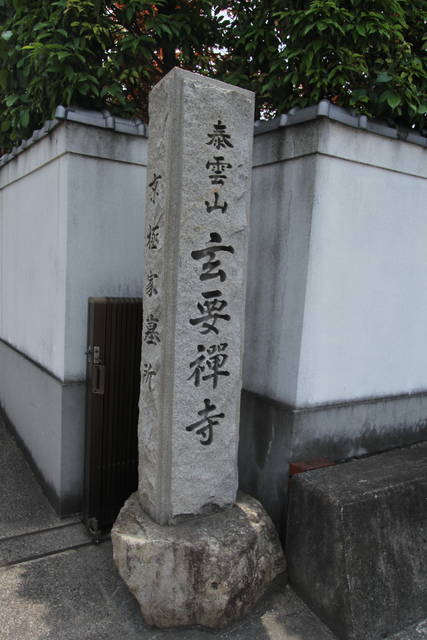 泰雲山
玄要禪寺
京極家墓所